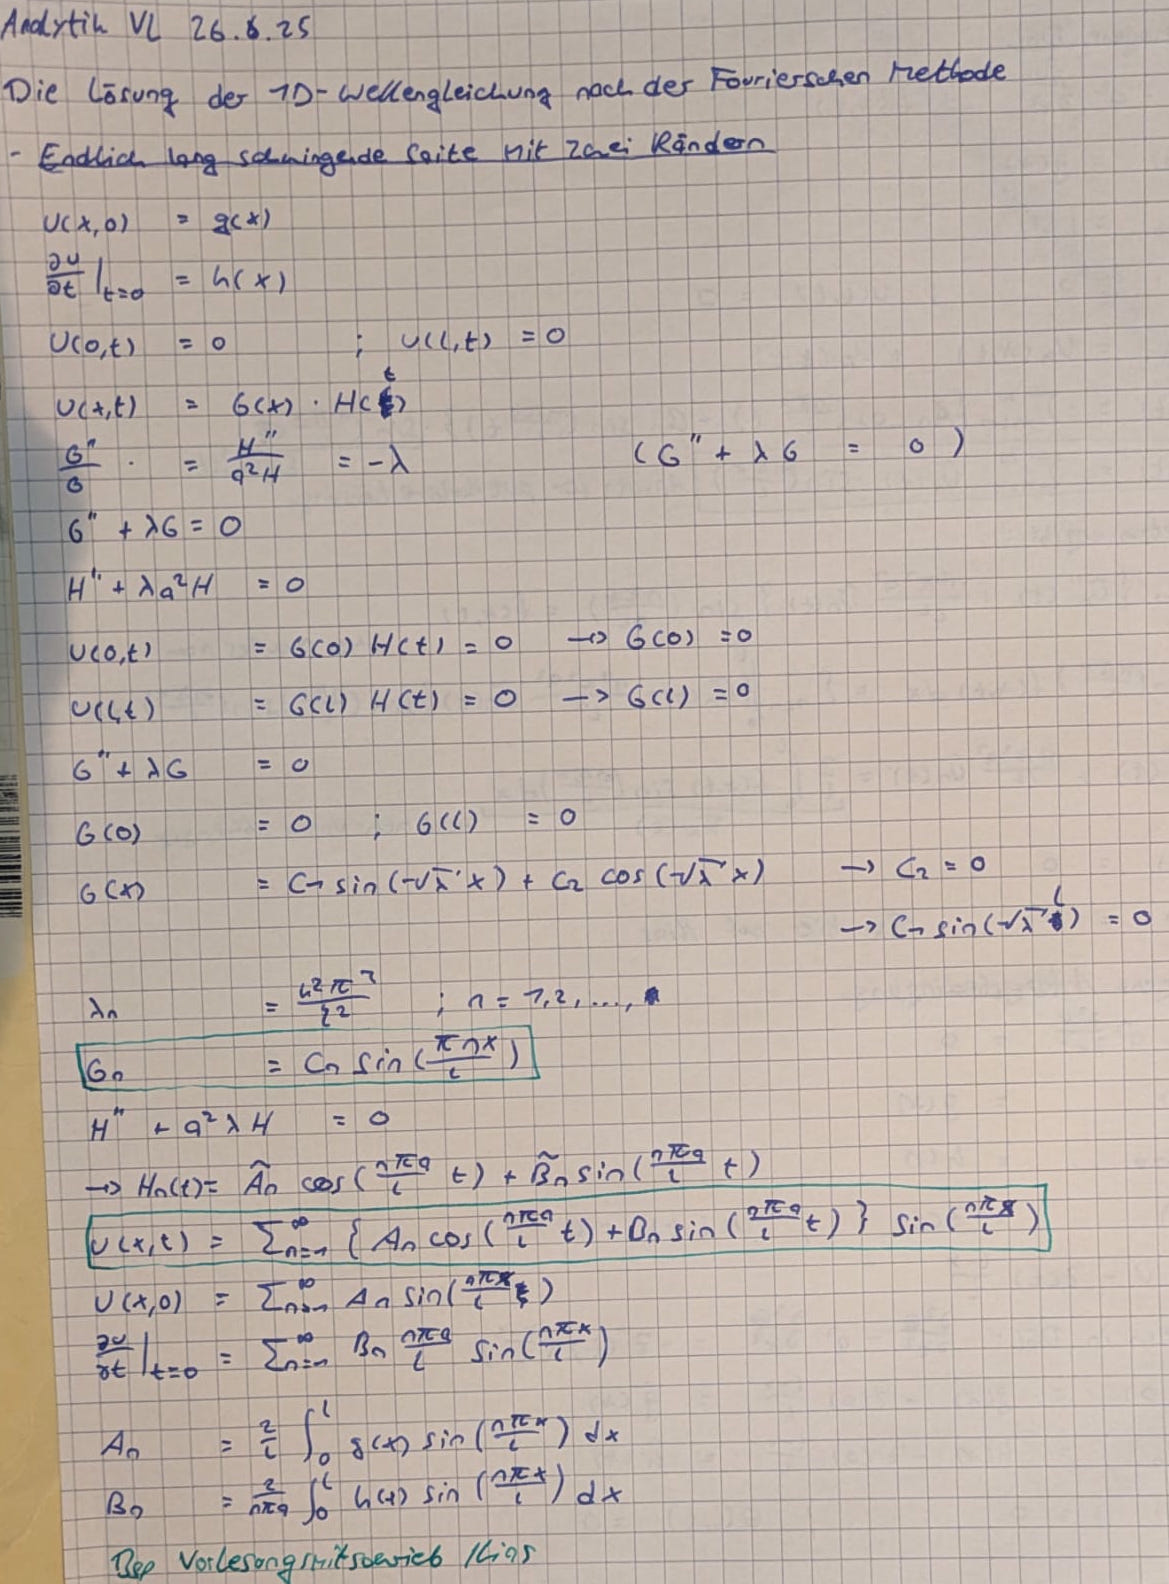 Analytik VL 26.6.25
Die Lösung der 1D-Wellengleichung nach der Fourierschen Methode
- Endlich lang schwingende Saite mit zwei Rändern
U(x,0) = g(x)
∂u/∂t |t=0 = h(x)
U(0,t) = 0 ; U(l,t) = 0
U(x,t) = G(x) · H(t)
G''/G · = H''/a²H = -λ (G'' + λG = 0)
G'' + λG = 0
H'' + λa²H = 0
U(0,t) = G(0) H(t) = 0 → G(0) = 0
U(l,t) = G(l) H(t) = 0 → G(l) = 0
G'' + λG = 0
G(0) = 0 ; G(l) = 0
G(x) = C₁ sin(√λ x) + C₂ cos(√λ x) → C₂ = 0
→ C₁ sin(√λ l) = 0
λn = n²π²/l² ; n = 1,2,...,
Gn = Cn sin(πnx/l)
H'' + a²λH = 0
→ Hn(t) = Ãn cos(nπa/l t) + B̃n sin(nπa/l t)
U(x,t) = Σn=1^∞ { An cos(nπa/l t) + Bn sin(nπa/l t) } sin(nπx/l)
U(x,0) = Σn=1^∞ An sin(nπx/l)
∂u/∂t |t=0 = Σn=1^∞ Bn nπa/l sin(nπx/l)
An = 2/l ∫₀^l g(x) sin(nπx/l) dx
Bn = 2/nπa ∫₀^l h(x) sin(nπx/l) dx
Bsp Vorlesungsmitschrieb Ilias